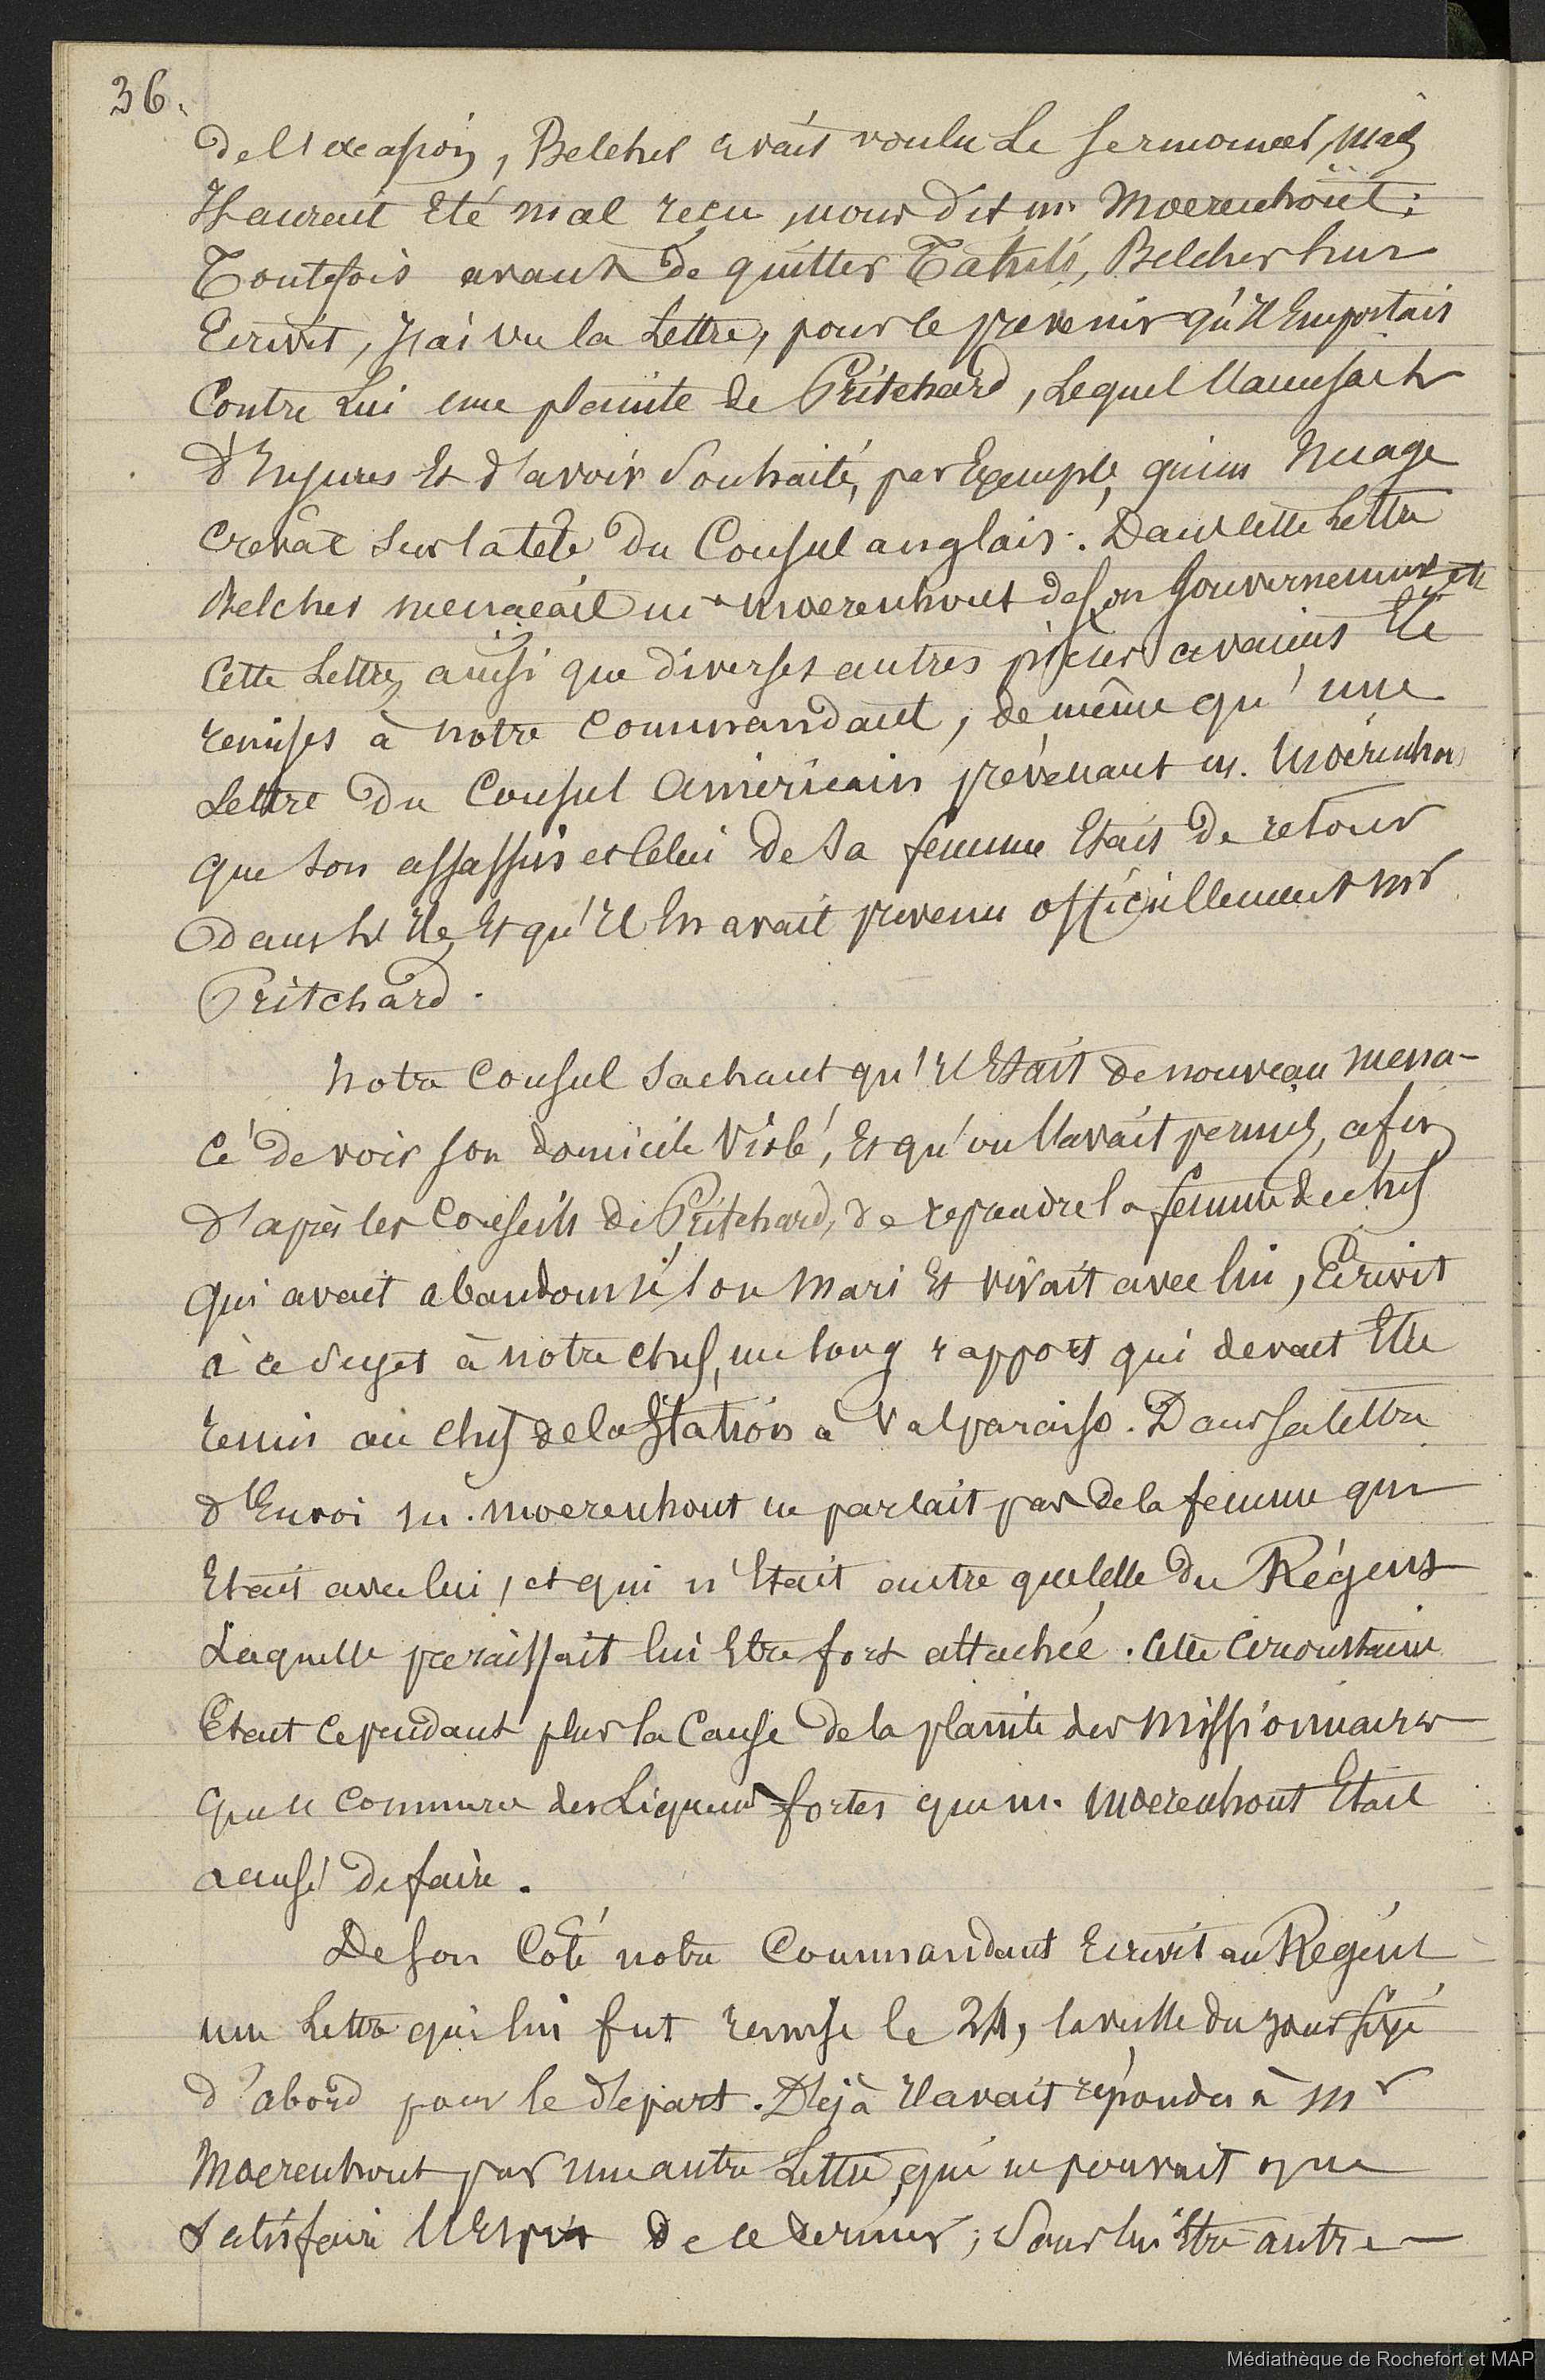 36.
de l'occasion, Belcher avait voulu le sermoner, mais
Il aurait été mal reçu, nous dit mr Moerenhout:
Toutefois avant de quitter Tahiti, Belcher lui
Ecrivit, j'ai vu la Lettre, pour le prévenir qu'Il Emportait
Contre Lui une plainte de Pritchard, Lequel l'accusait
d'Injures Et d'avoir Souhaité, par Exemple, qu'un Nuage
crevât sur la tête du Consul anglais. Dans cette Lettre
Belcher menaçait mr Moerenhout de son Gouvernement et
Cette Lettre, ainsi que diverses autres pièces avaient Eté
remises à notre Commandant, de même qu'une
Lettre du Consul Américain prévenant m. Moerenhou
que son assassin et Celui de sa femme Etait de retour
dans l'Ile, Et qu'Il En avait prevenu officiellement mr
Pritchard.
Notre Consul Sachant qu'Il Etait de nouveau mena-
cé de voir son domicile Violé, Et qu'on l'avait permis, afin
d'après les Conseils de Pritchard, de reprendre la femme de chef
qui avait abandonné son Mari Et vivait avec lui, Ecrivit
à ce Sujet à notre chef, un long rapport qui devait Etre
remis au chef de la Station à Valparaiso. Dans sa lettre
d'Envoi m. Moerenhout ne parlait pas de la femme qui
Etait avec lui, et qui n'Etait autre que celle du Régent
Laquelle paraissait lui Etre fort attachée. Cette Circonstance
Etait Cependant plus la Cause de la plainte des Missionnaires
que le Commerce des Liqueurs fortes que m. Moerenhout Etait
accusé de faire.
De son Coté notre Commandant Ecrivit au Régent
une Lettre qui lui fut remise le 24, la veille du jour fixé
d'abord pour le départ. Déjà Il avait répondu à Mr
Moerenhout par une autre Lettre, qui ne pouvait que
satisfaire l'Esprit de ce dernier; Sans lui Etre autre-
Médiathèque de Rochefort et MAP